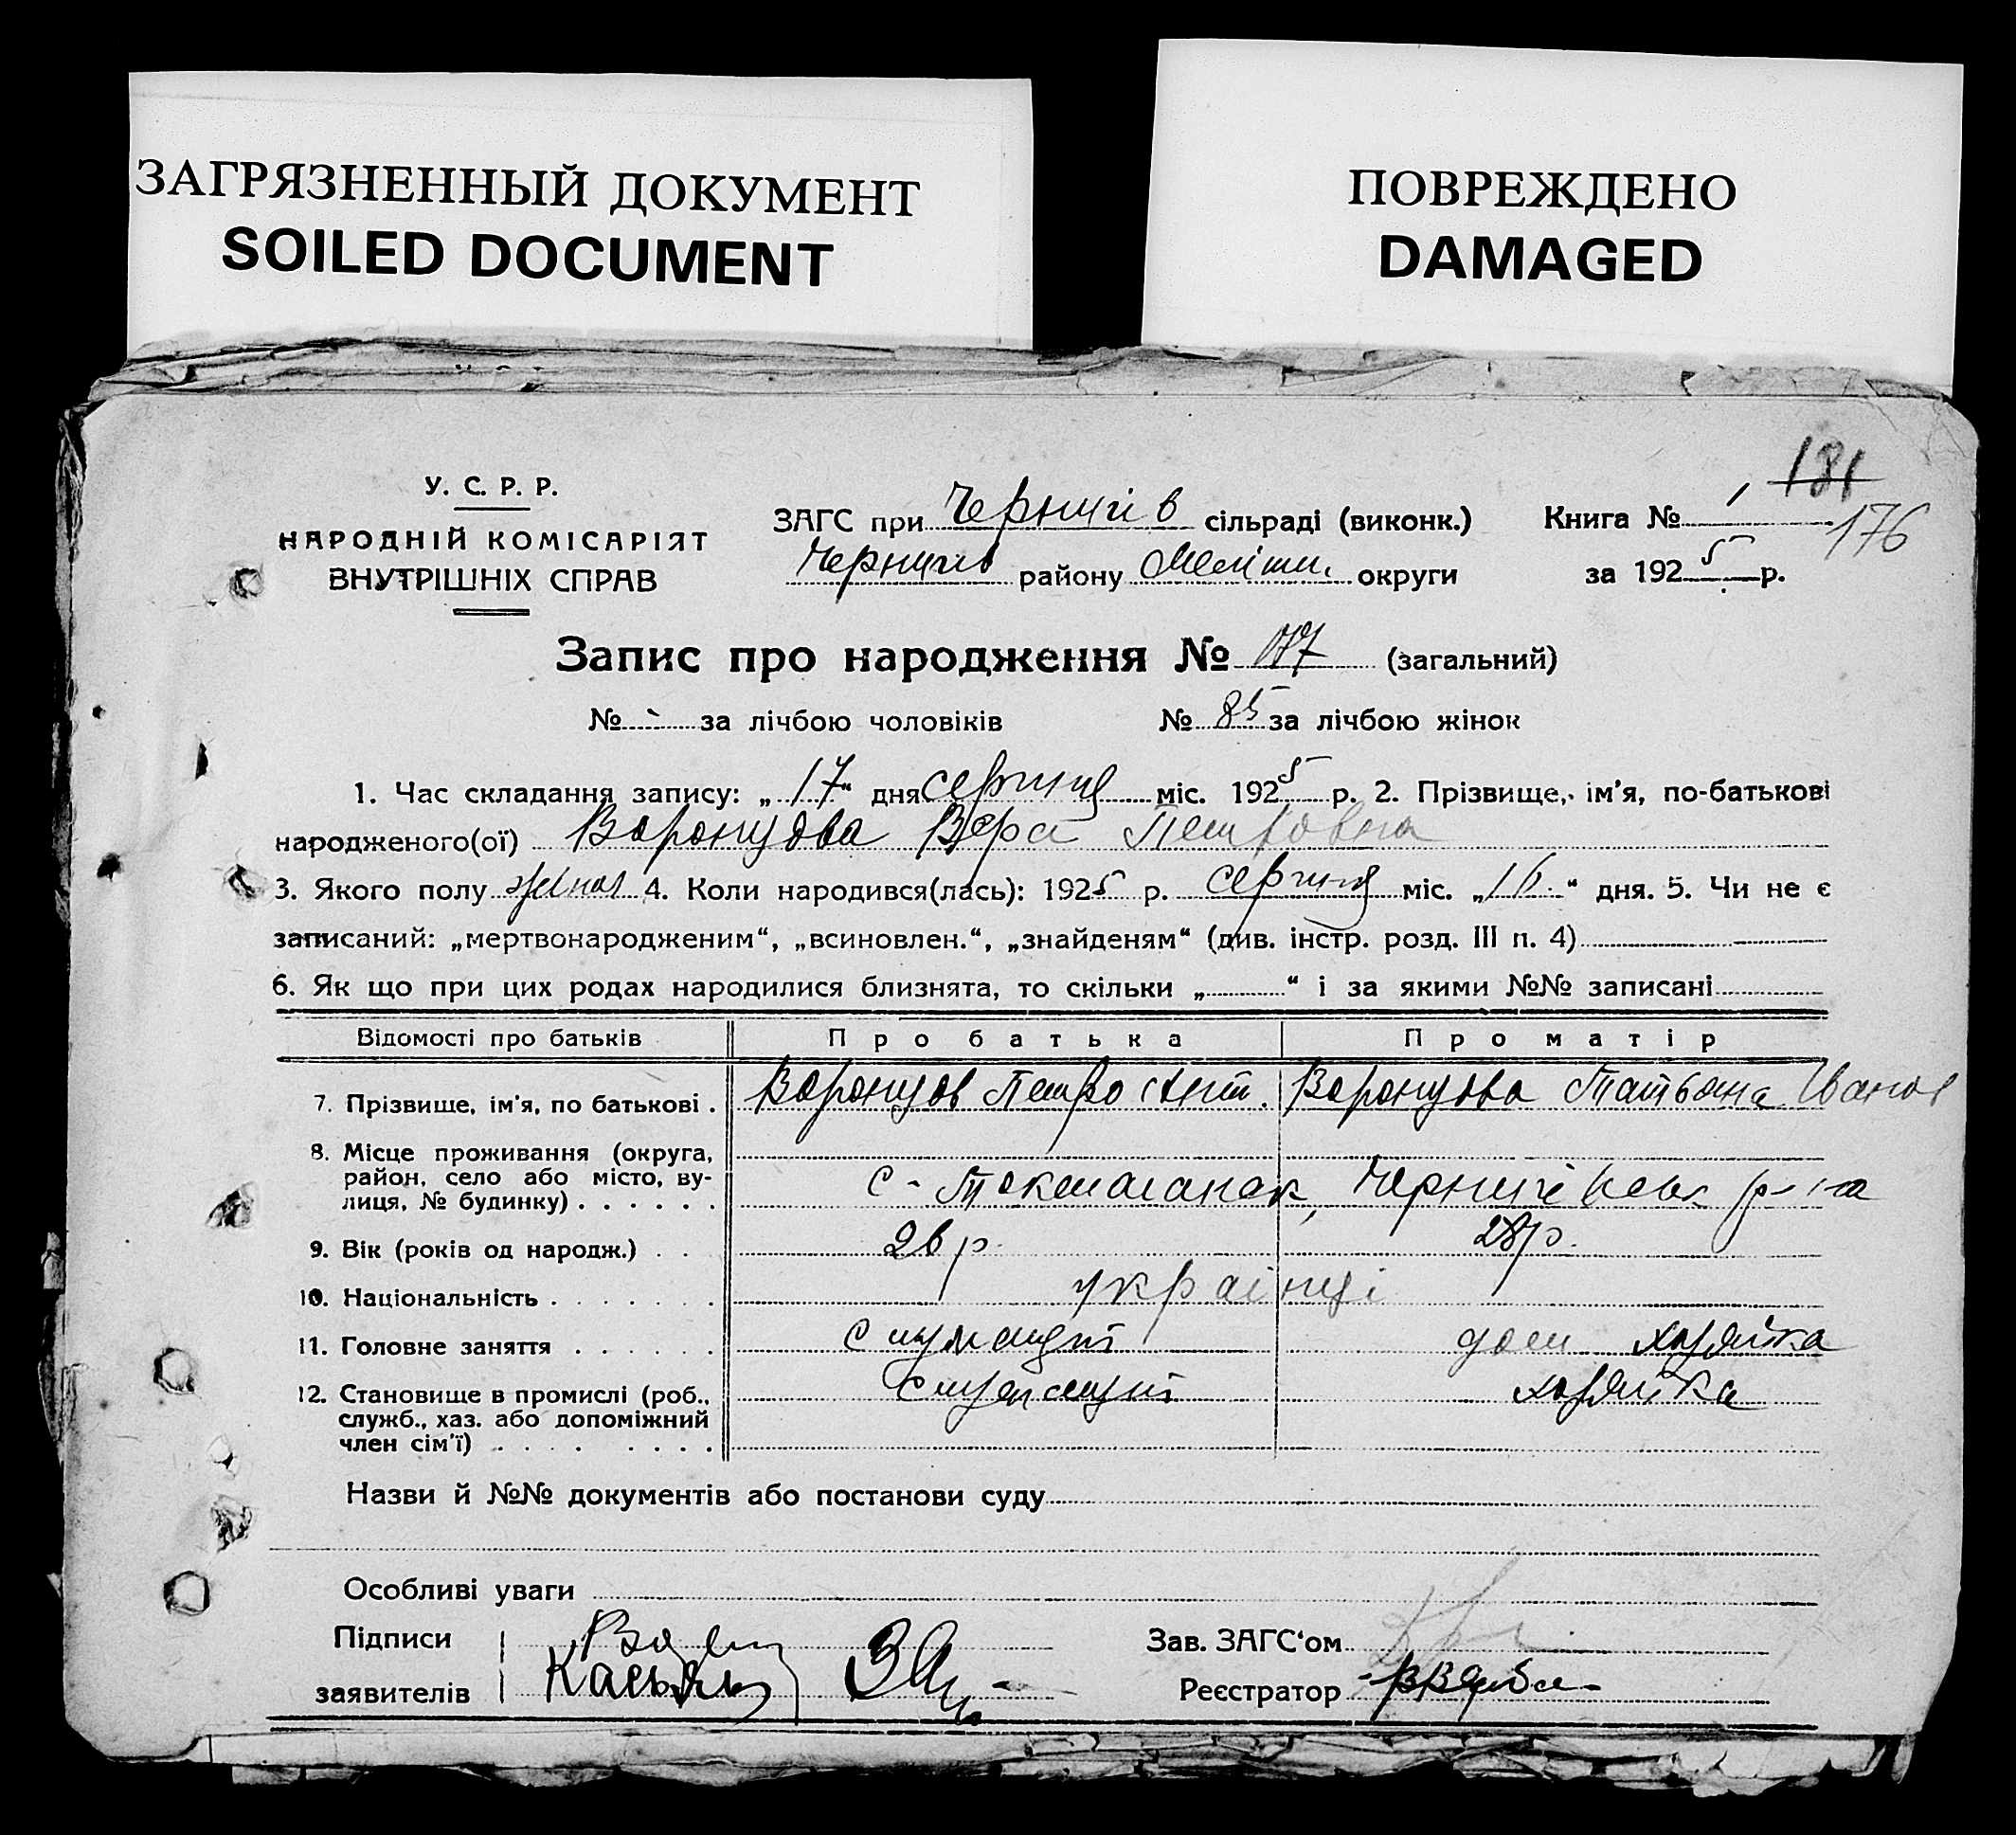 ЗАГРЯЗНЕННЫЙ ДОКУМЕНТ
SOILED DOCUMENT
ПОВРЕЖДЕНО
DAMAGED
181
176
У. С. Р. Р.
НАРОДНІЙ КОМІСАРІЯТ
ВНУТРІШНІХ СПРАВ
ЗАГС при Чернигів сільраді (виконк.)
Чернигів району Меліт. округи
Книга № 1
за 1925 р.
Запис про народження № 177 (загальний)
№ - за лічбою чоловіків № 85 за лічбою жінок
1. Час складання запису: „17“ дня серпня міс. 1925 р. 2. Прізвище, ім'я, по-батькові
народженого(ої) Воронцова Вера Петровна
3. Якого полу жіноч 4. Коли народився(лась): 1925 р. серпня міс. „16.“ дня. 5. Чи не є
записаний: „мертвонародженим“, „всиновлен.“, „знайденям“ (див. інстр. розд. III п. 4)
6. Як що при цих родах народилися близнята, то скільки „ “ і за якими №№ записані
Відомості про батьків Про батька Про матір
7. Прізвище, ім'я, по батькові . Воронцов Петро Ант. Воронцова Татьяна Іванов
8. Місце проживання (округа,
район, село або місто, ву-
лиця, № будинку) . . . . . . с. Токмачанак, Чернигівськ р-на
9. Вік (років од народж.) . . 26 р. 28 р.
10. Національність . . . . . . . українці
11. Головне заняття . . . . . . дом хазяйка
12. Становище в промислі (роб.,
служб., хаз. або допоміжний
член сім'ї) . . . . . . . . хазяйка
Назви й №№ документів або постанови суду
Особливі уваги
Підписи
заявителів
Зав. ЗАГС‘ом
Реєстратор